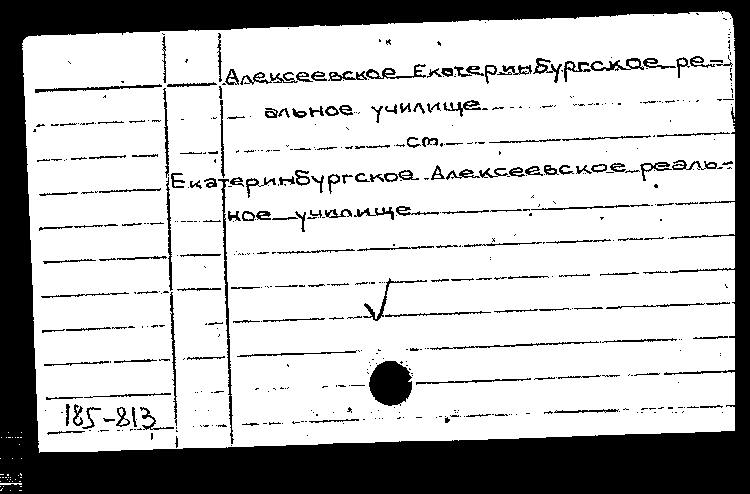 Алексеевское Екатеринбургское ре-
альное училище
см.
Екатеринбургское Алексеевское реаль-
ное училище
185-813